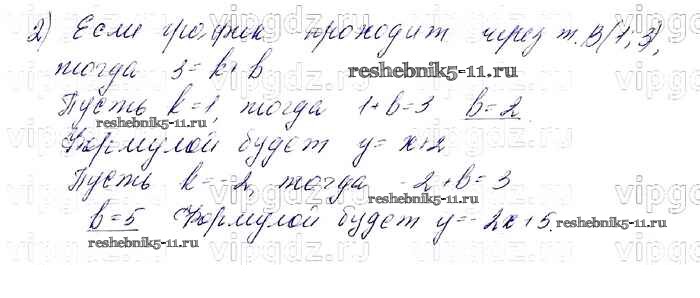 2) Если график проходит через т. B(1; 3),
тогда 3 = k + b
reshebnik5-11.ru
Пусть k = 1, тогда 1 + b = 3 b = 2
reshebnik5-11.ru reshebnik5-11.ru
Формулой будет y = x + 2
Пусть k = -2, тогда -2 + b = 3
reshebnik5-11.ru
b = 5 Формулой будет y = -2x + 5.
reshebnik5-11.ru reshebnik5-11.ru
vipgdz.ru